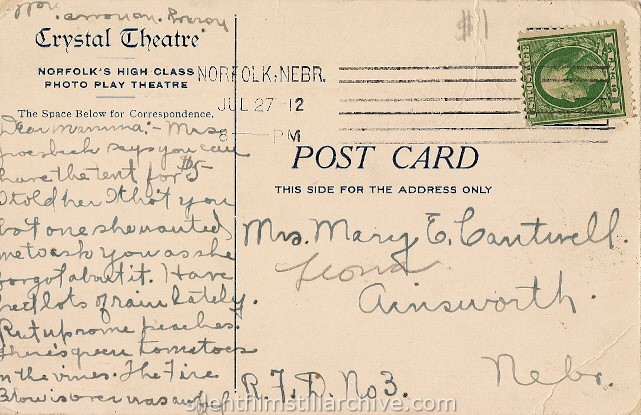 Crystal Theatre
NORFOLK'S HIGH CLASS
PHOTO PLAY THEATRE
The Space Below for Correspondence.
Dear mamma:- Mrs
says you can
have the tent for $5
I told her I that you
bo't one she wanted
me to ask you as she
forgot about it. I have
lots of rain lately.
Put up some peaches.
There's green tomatoes
on the vines. The Fire
Blow is over was
$1
NORFOLK, NEBR.
JUL 27 -12
8 - PM
U.S. POSTAGE
1 CENT 1
POST CARD
THIS SIDE FOR THE ADDRESS ONLY
Mrs. Mary E. Cantwell.
Leona
Ainsworth.
Nebr.
R.F.D. No 3.
silentfilmstillarchive.com